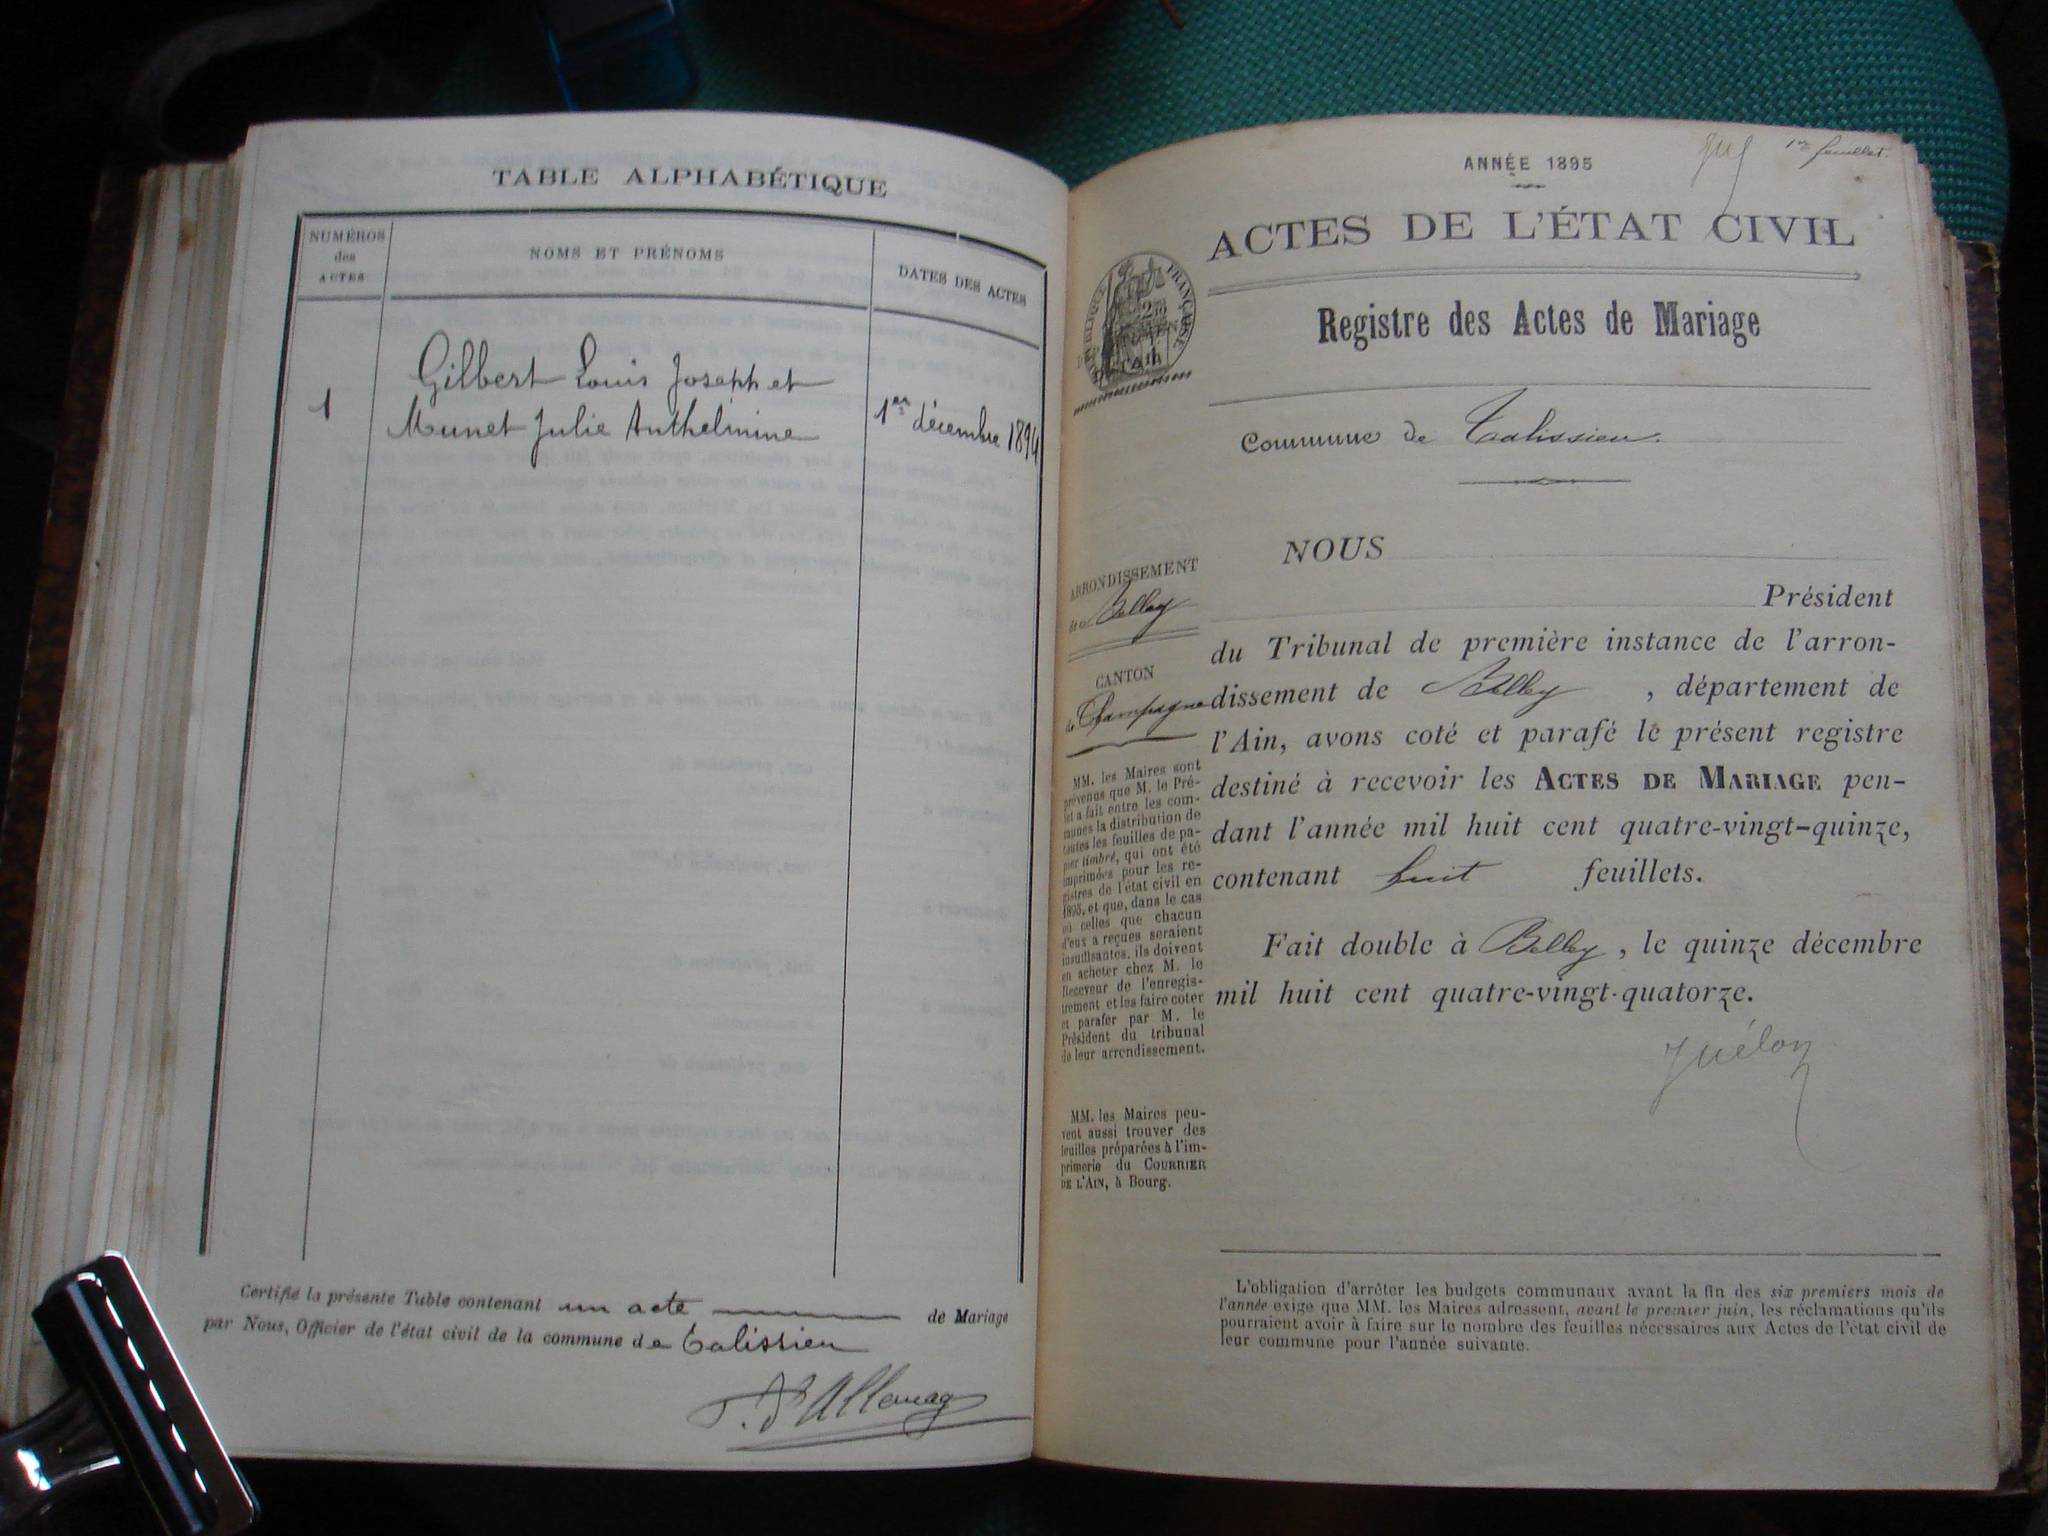 TABLE ALPHABÉTIQUE
NUMÉROS
des
ACTES
NOMS ET PRÉNOMS
DATES DES ACTES
1
Gilbert Louis Joseph et
Munet Julie Anthelmine
1er décembre 1894
Certifié la présente Table contenant un acte de Mariage
par Nous, Officier de l'état civil de la commune de Talissieu
ANNÉE 1895
1er feuillet.
ACTES DE L'ÉTAT CIVIL
RÉPUBLIQUE FRANÇAISE
Registre des Actes de Mariage
Commune de Talissieu.
NOUS
Président
du Tribunal de première instance de l'arron-
dissement de Belley, département de
l'Ain, avons coté et parafé le présent registre
destiné à recevoir les ACTES DE MARIAGE pen-
dant l'année mil huit cent quatre-vingt-quinze,
contenant huit feuillets.
Fait double à Belley, le quinze décembre
mil huit cent quatre-vingt-quatorze.
ARRONDISSEMENT
de Belley
CANTON
de Champagne
MM. les Maires sont
prévenus que M. le Pré-
fet a fait entre les com-
munes la distribution de
toutes les feuilles de pa-
pier timbré, qui ont été
imprimées pour les re-
gistres de l'état civil en
1895, et que, dans le cas
où celles que chacun
d'eux a reçues seraient
insuffisantes, ils doivent
en acheter chez M. le
Receveur de l'enregis-
trement et les faire coter
et parafer par M. le
Président du tribunal
de leur arrondissement.
MM. les Maires peu-
vent aussi trouver des
feuilles préparées à l'im-
primerie du COURRIER
DE L'AIN, à Bourg.
L'obligation d'arrêter les budgets communaux avant la fin des six premiers mois de
l'année exige que MM. les Maires adressent, avant le premier juin, les réclamations qu'ils
pourraient avoir à faire sur le nombre des feuilles nécessaires aux Actes de l'état civil de
leur commune pour l'année suivante.